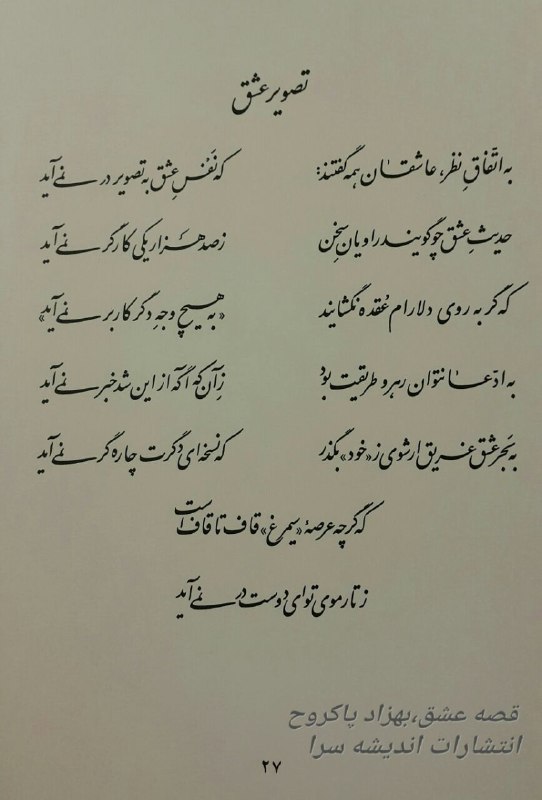 تصویر عشق
به اتّفاقِ نظر، عاشقان همه گفتند: که نَفْسِ عِشق به تصویر در نمی‌آید
حدیثِ عشق چو گویند راویانِ سخن زصد هزار یکی کارگر نمی‌آید
که گر به روی دلارام عُقده نگشایند «به هیچ وجهِ دگر کار بر نمی‌آید»
به ادّعا نتوان رهرو طریقت بود زِآن که آگه از این شد خبر نمی‌آید
به بَحرِ عشق غریق ار شوی ز «خود» بگذر که نسخه‌ای دگرت چاره‌گر نمی‌آید
که گرچه عرصهٔ «سیمرغ» قاف تا قاف است
ز تار موی تو ای دوست در نمی‌آید
قصه عشق،بهزاد پاکروح
انتشارات اندیشه سرا
۲۷